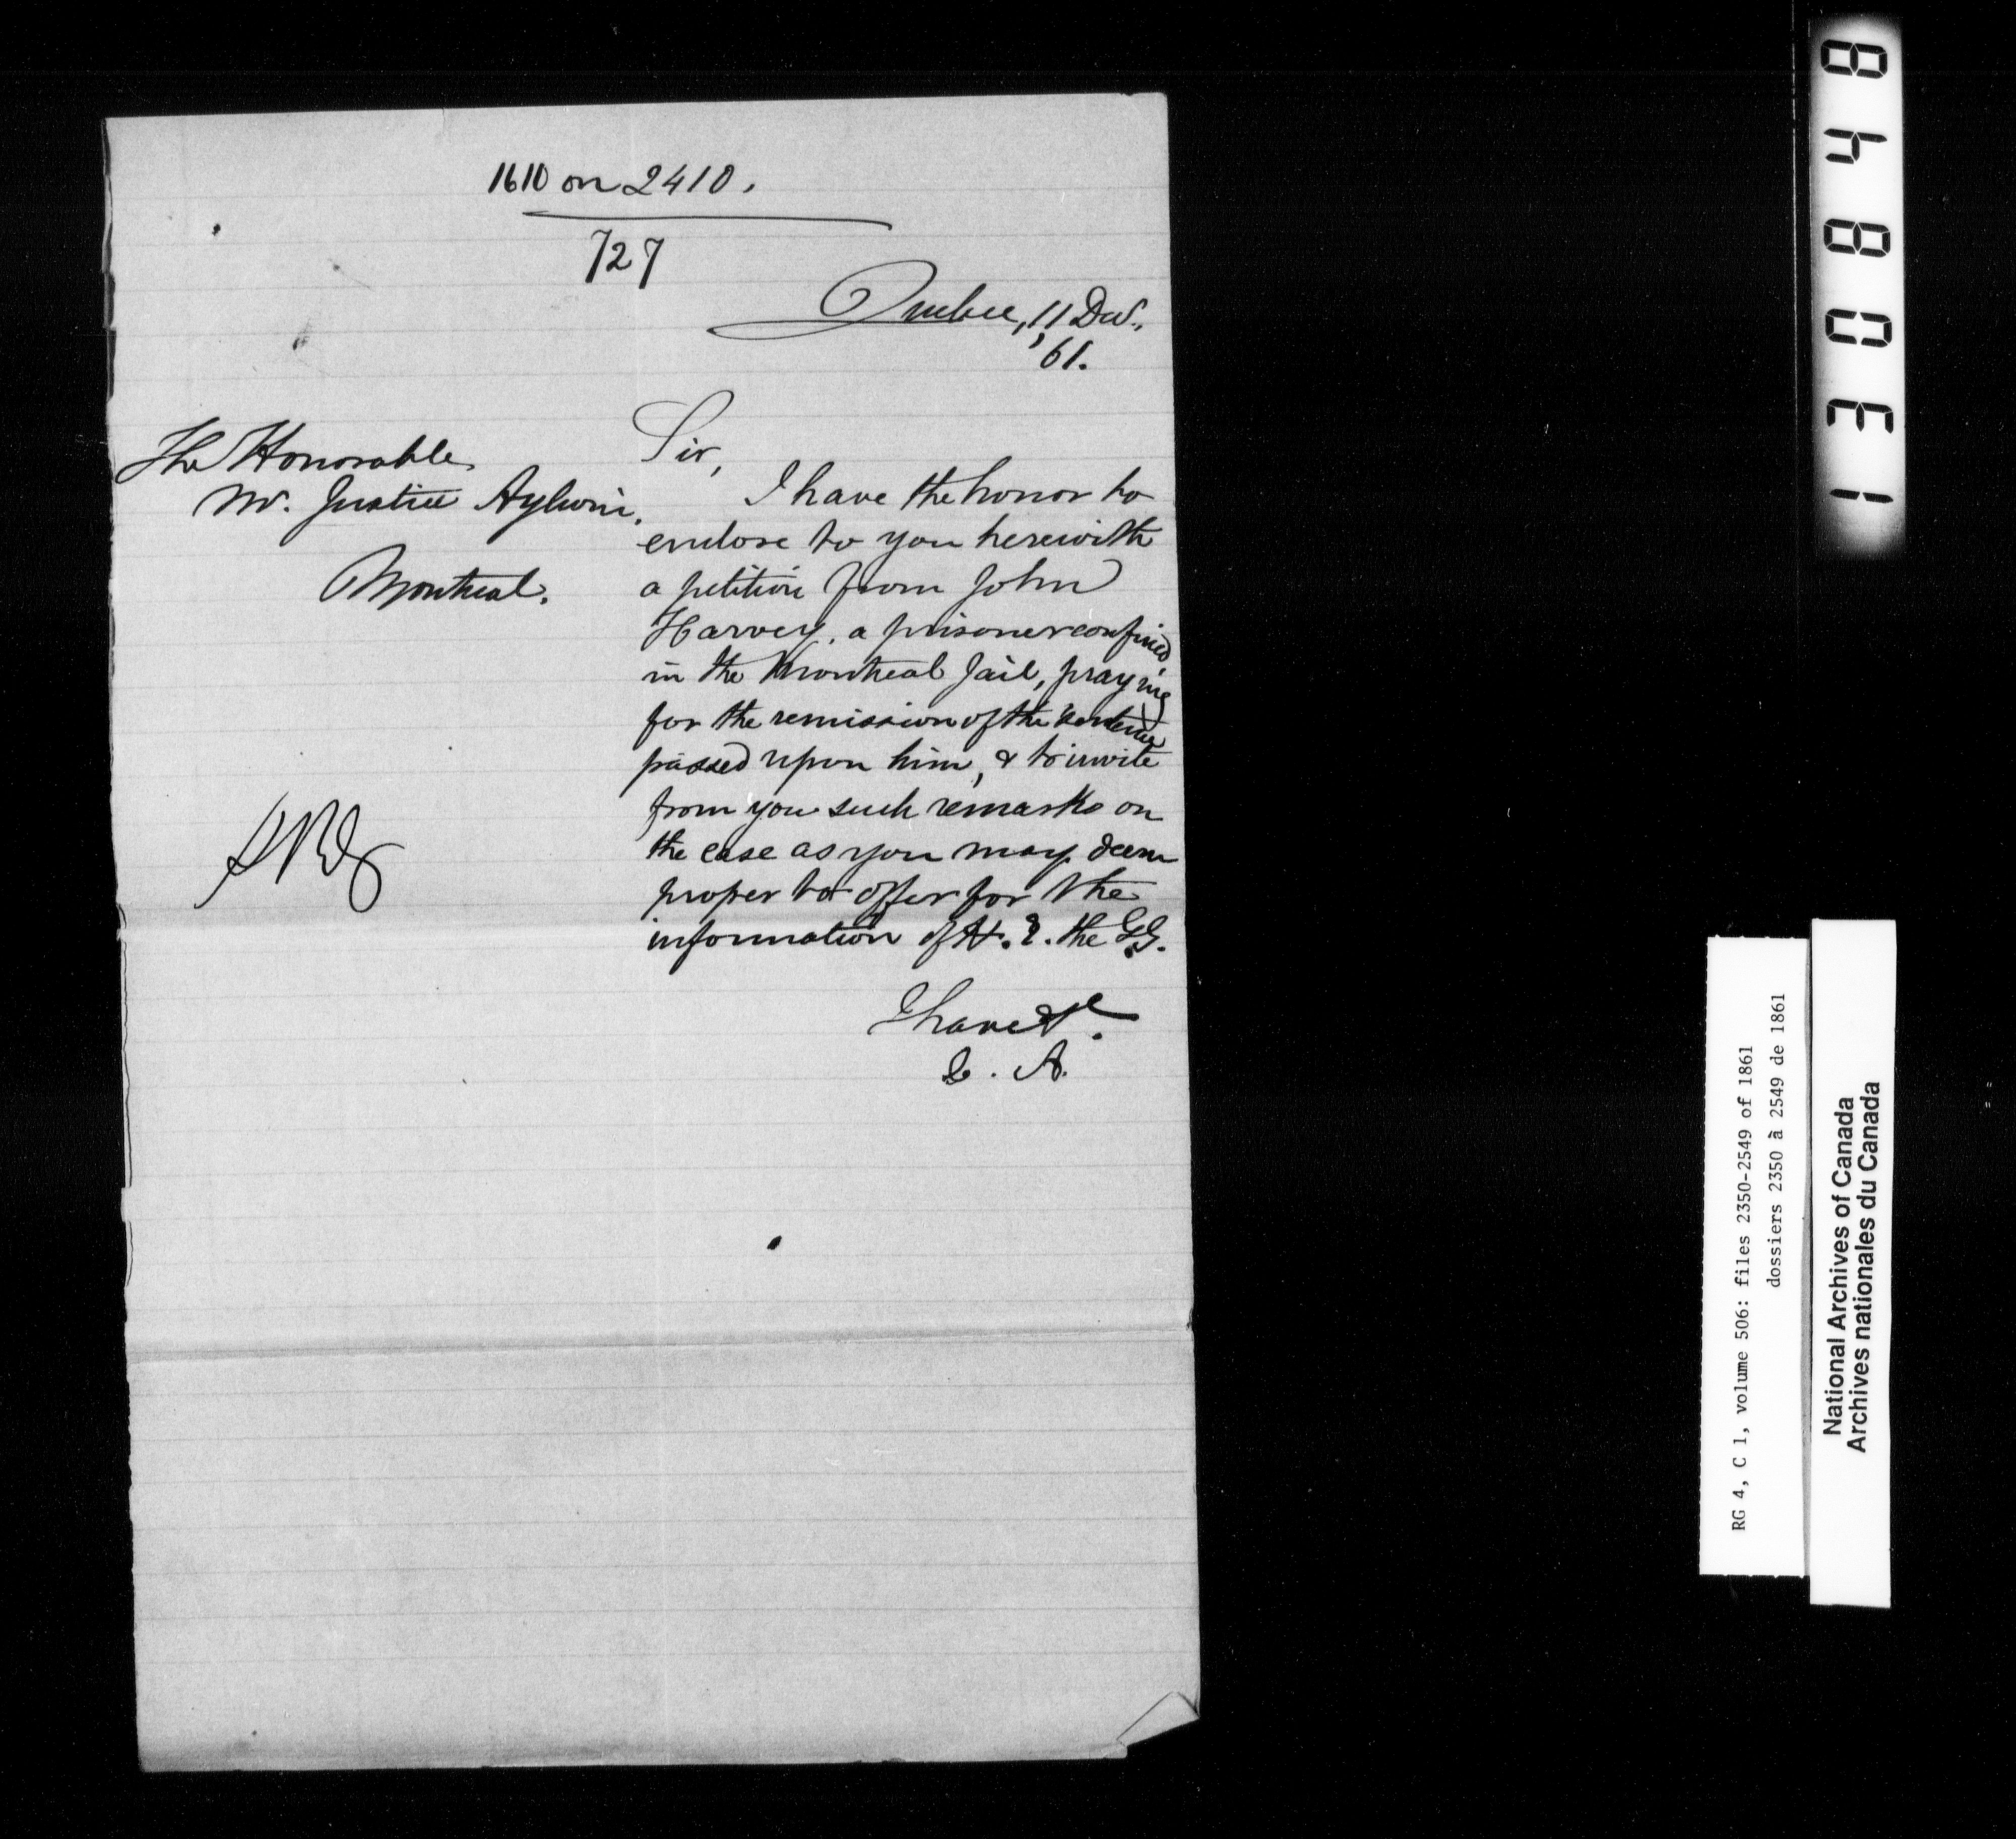 1610 on 2410.
727
Quebec, 11 Dec.,
'61.
The Honorable
Mr. Justice Aylwin,
Montreal.
Sir,
I have the honor to
enclose to you herewith
a petition from John
Harvey, a prisoner confined
in the Montreal Jail, praying
for the remission of the sentence
passed upon him, & to invite
from you such remarks on
the case as you may deem
proper to offer for the
information of H. E. the G.G.
I have &c.
C. A.
130848
RG 4, C 1, volume 506: files 2350-2549 of 1861
dossiers 2350 à 2549 de 1861
National Archives of Canada
Archives nationales du Canada